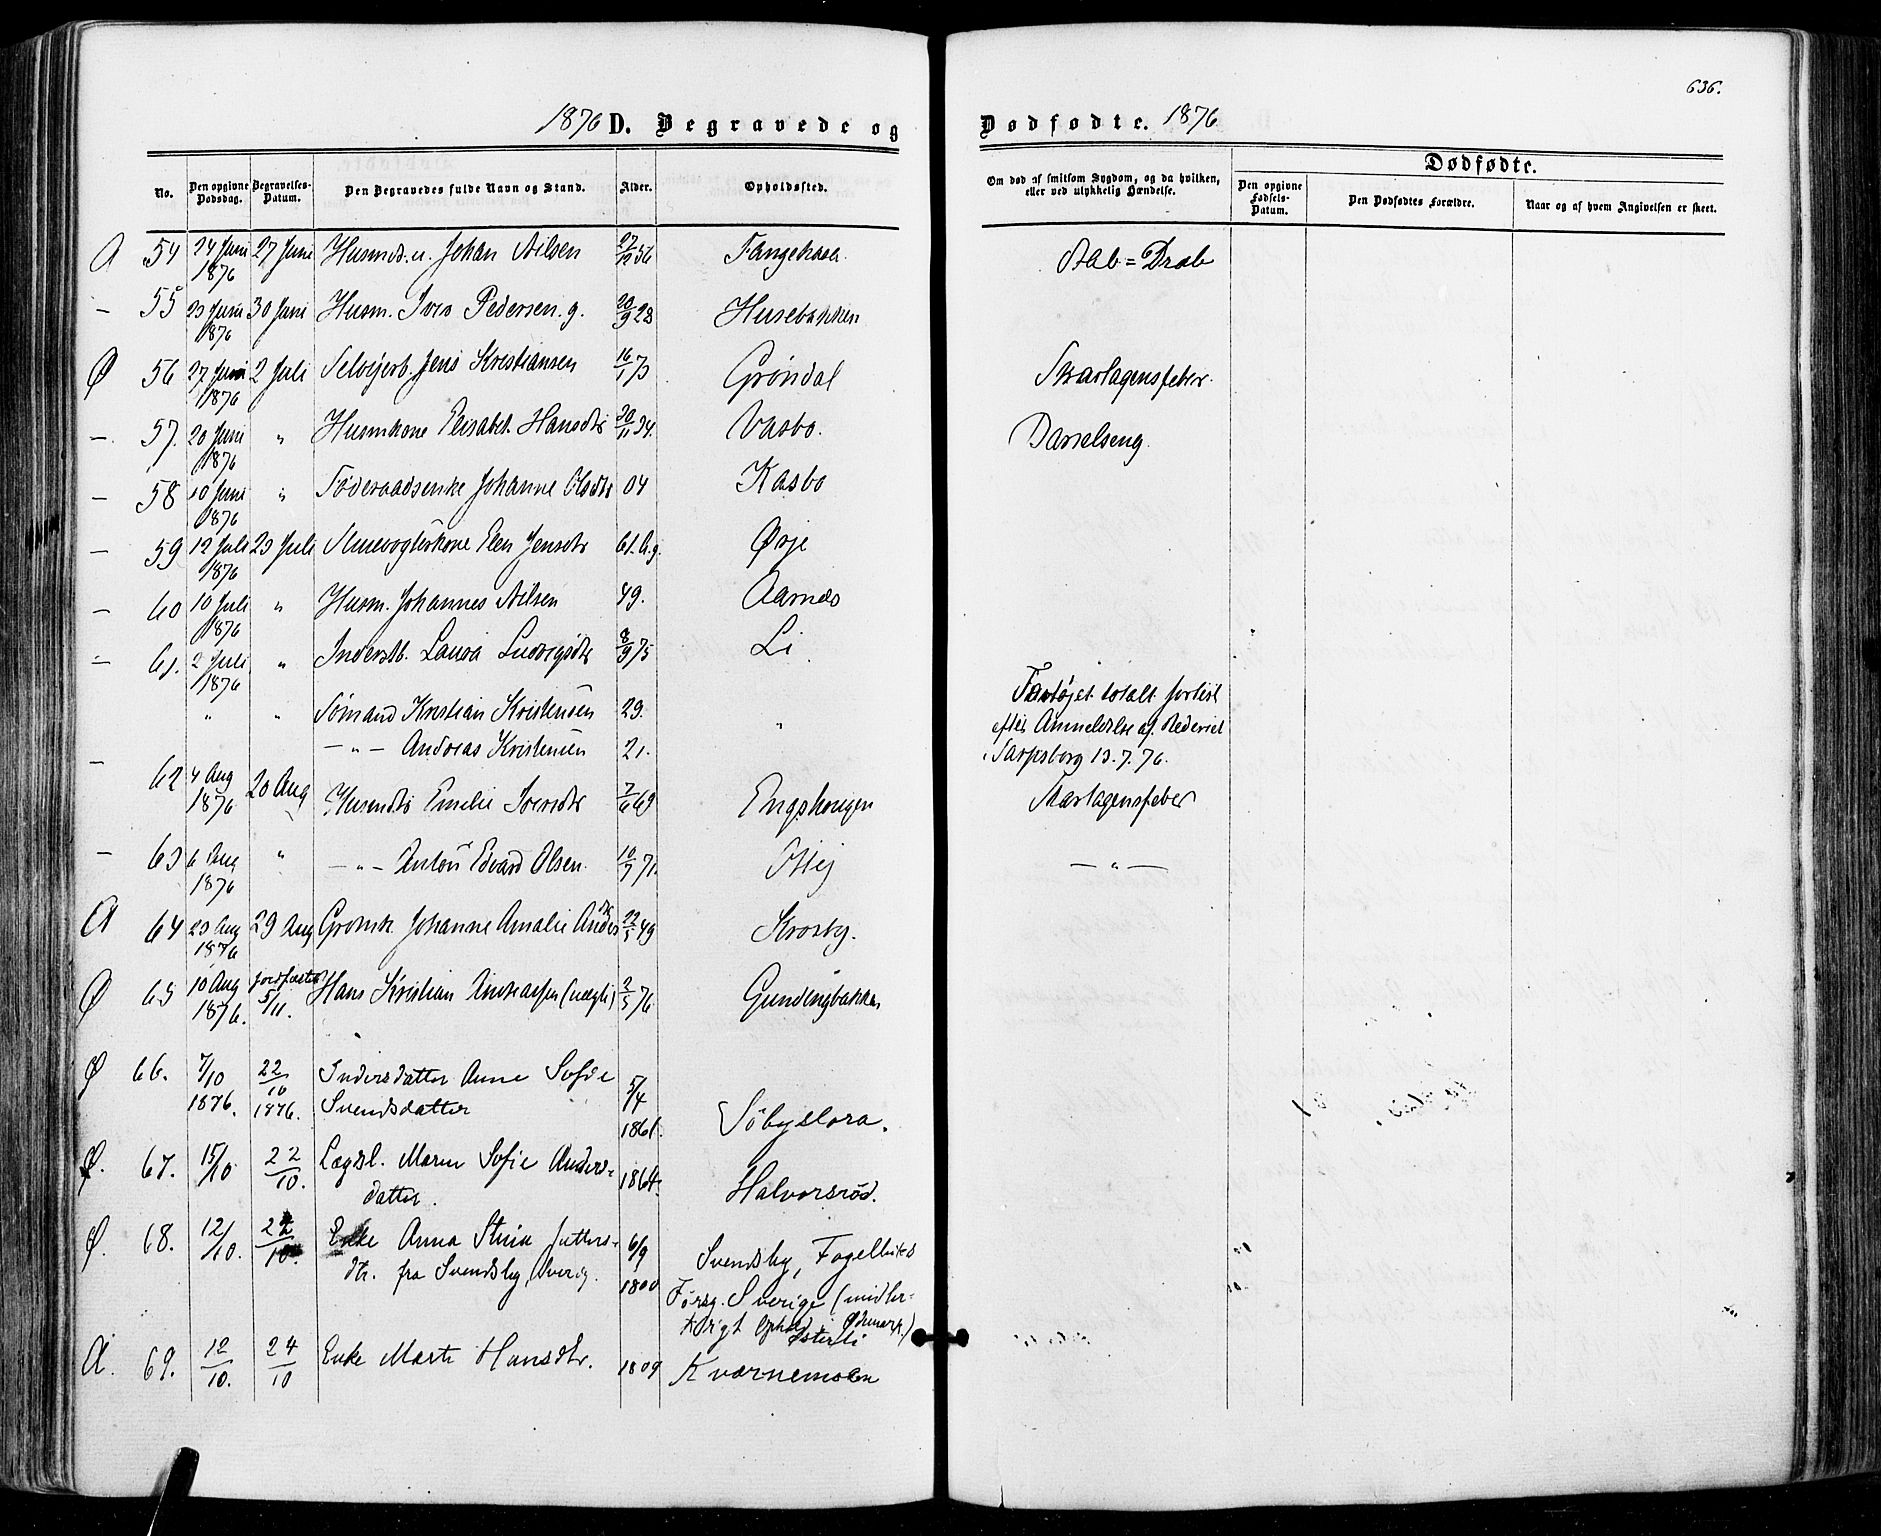 636.
1876 D. Begravede og Dødfødte. 1876
No.
Den opgivne Dødsdag.
Begravelses-Datum.
Den Begravedes fulde Navn og Stand.
Alder.
Opholdssted.
Om død af smitsom Sygdom, og da hvilken, eller ved ulykkelig Hændelse.
Dødfødte.
Den opgivne Fødsels-Datum.
Den Dødfødtes Forældre.
Naar og af hvem Angivelsen er skeet.
A 54 24 Juni 1876 27 Juni Husmds. u. Johan Nilsen 27/12 56 Tangekasa
— 55 23 Juni 1876 30 Juni Husm. Iver Pedersen. g. 20/9 28 Husebakken
Ø 56 27 Juni 1876 2 Juli Selvejerb. Jens Kristiansen 16/1 73 Grøndal Skarlagensfeber.
— 57. 20 Juni 1876 " Husmkone Elisabet Hansdtr 20/11 34. Vasbo. Barselseng.
— 58 10 Juni 1876 " Føderaadsenke Johanne Olsdtr 04 Kasbo
— 59 12 Juli 1876 23 Juli Slusevogterkone Elen Jensdtr 61. A.g. Ørje
— 60 10 Juli 1876 " Husm. Johannes Nilsen 49. Aarnes
— 61. 2 Juli 1876 " Inderstb. Laura Ludvigsdtr 8/9 75 Li
" " Sømand Kristian Kristensen 29. " Fartøjet totalt forlist
— " — Andreas Kristensen 21. efter Anmeldelse af Rederiet
i Sarpsborg 13.7.76.
— 62 4 Aug 1876 20 Aug Husmdtr Emilie Iversdtr 7/6 69 Engshougen Skarlagensfeber
— 63 6 Aug 1876 " — " — Anton Edvard Olsen. 10/7 71. — " —
A 64 23 Aug 1876 29 Aug Grdmk. Johanne Amalie Andersdtr 22/5 49 Krosby.
Ø 65 10 Aug 1876. jordfæstet 5/11. Hans Kristian Andreassen (uægte) 2/5 76 Gundingbakken
Ø 66. 7/10 1876. 22/10 1876. Indersdatter Anne Sofie
Svendsdatter 5/4 1861. Söbyslora.
Ø. 67. 15/10 22/10. Lægdsl. Maren Sofie Anders-
datter. 1864. Halvorsröd.
Ø. 68. 12/10. 22/10. Enke Anna Stina
dtr. fra Svendsby, Sverig. 6/9 1800 Svendsby, Fogelviks
Försg. Sverige (midler-
tidigt Ophold i Ödemark.)
Österli
A. 69. 12/10. 24/10 Enke Marte Hansdtr. 1809 Kværnemoen